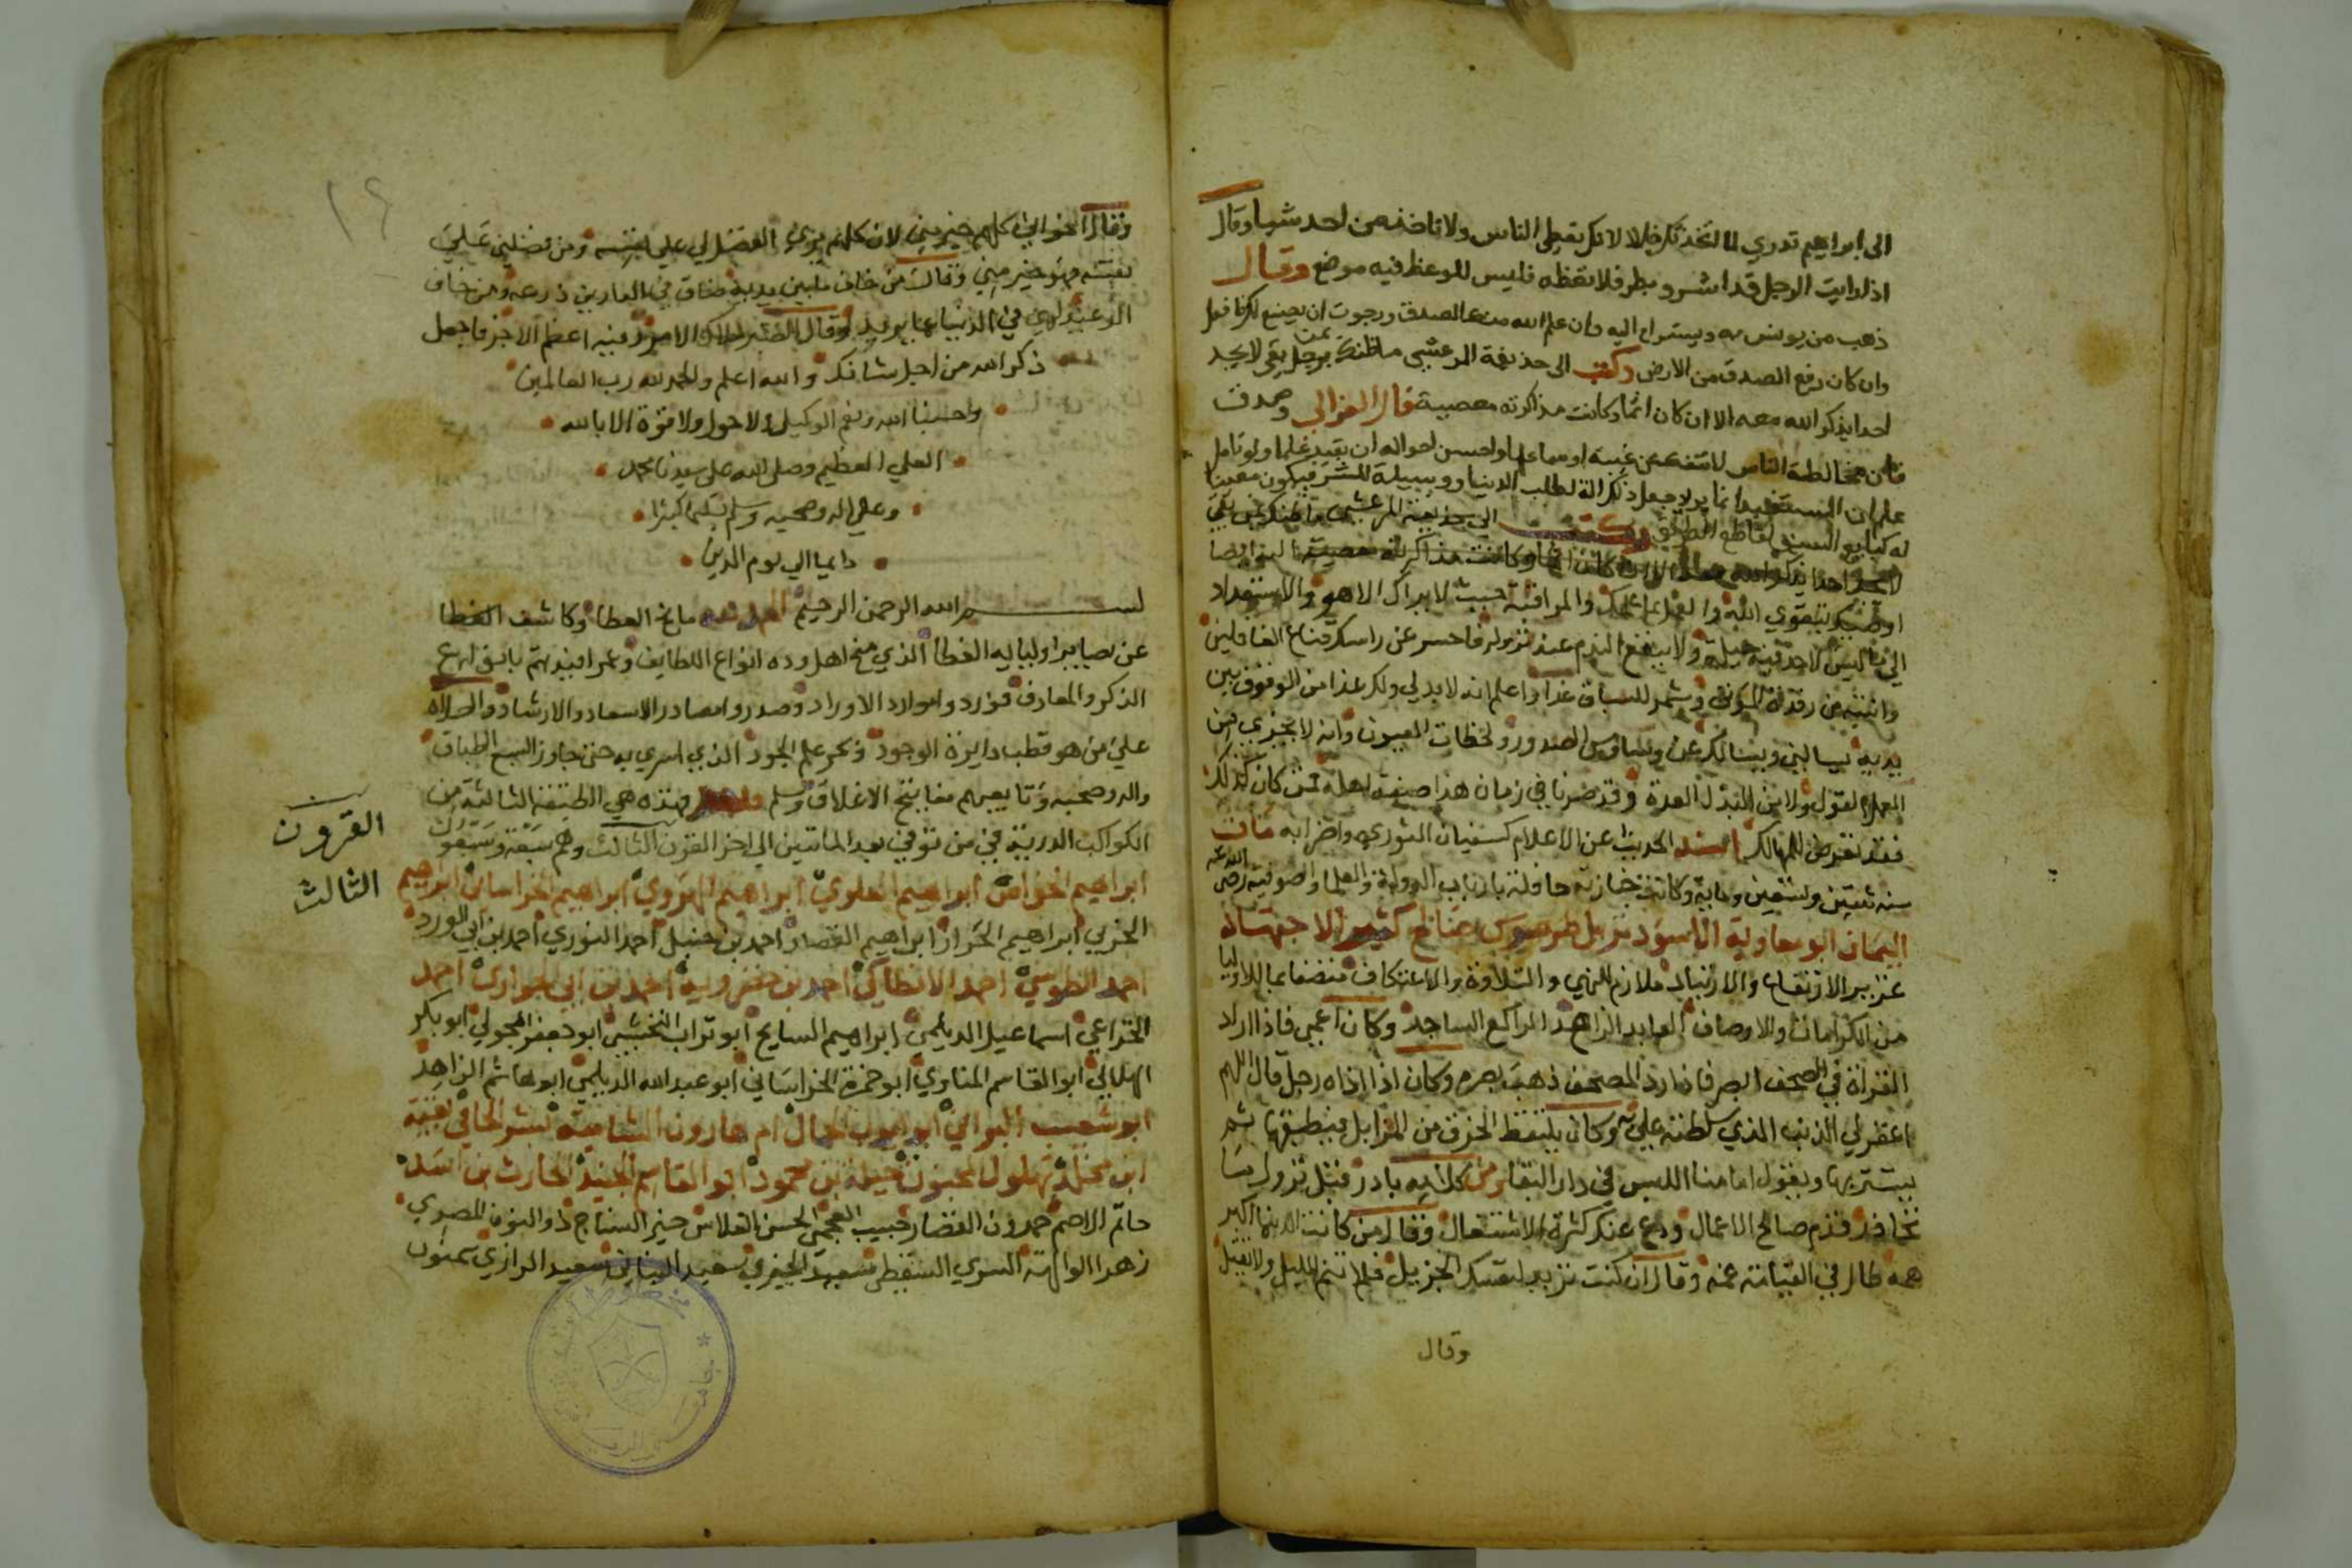 الى ابراهيم تدري لما اتخذتك خليلا لانك تعطي الناس ولا تاخذ من احد شيا وقال
اذا رايت الرجل قد اشر وبطر فلا تعظه فليس للوعظ فيه موضع وقال
ذهب من يونس به ويستراح اليه وان علم الله منك الصدق رجوت ان يصنع لك فافعل
وان كان رفع الصدق من الارض وكتب الى حذيفة المرعشي ما ظنك بمن بقي لا يجد
احدا يذكر الله معه الا ان كان اثما وكانت مذاكرته معصية قال الغزالي وصدق
فان مخالطة الناس لا تنفك عن غيبة او سماعها واحسن احواله ان يفيد علما ولو تامل
علم ان المستفيد انما يريد جعل ذلك الة لطلب الدنيا ووسيلة للشر فيكون معينا
له كبايع السيف لقاطع الطريق وكتب الى حذيفة المرعشي
لا يجد احدا يذكر الله معه الا ان كان اثما وكانت مذاكرته معصية اليه ايضا
اوصيك بتقوي الله والعمل بما علمك والمراقبة حيث لا يراك الا هو والاستعداد
الى ما ليس لاحد فيه حيلة ولا ينفع الندم عند نزوله فاحسر عن راسك قناع الغافلين
وانتبه من رقدة الموتى وشمر للسباق غدا واعلم انه لا بد لي ولك غدا من الوقوف بين
يديه يسالني ويسالك عن وساوس الصدور ولحظات العيون وانه لا يجزي من
العمل القول ولا من البذل العدة وقد صرنا في زمان هذا صفة اهله فمن كان كذلك
فقد تعرض للمهالك اسند الحديث عن الاعلام كسفيان الثوري واضرابه مات
سنه وتسعين وماية وكانت جنازته حافلة بارباب الدولة والعلما والصوفيه رضي الله عنه
اليمان ابو معاوية الاسود نزيل طرسوس صالح كثير الاجتهاد
غزير الارتفاع والارتياد ملازم للنهي والتلاوة والاعتكاف متصفا بما للاوليا
من الكرامات والاوصاف العابد الزاهد الراكع الساجد وكان اعمى فاذا اراد
القراة في المصحف ابصر فاذا رد المصحف ذهب بصره وكان اذا اذاه رجل قال اللهم
اغفر لي الذنب الذي سلطته علي به وكان يلتقط الخرق من المزابل فيطبقها ثم
يستتر بها ويقول امامنا اللبس في دار البقا ومن كلامه بادر قبل نزول ما
تحاذر قدم صالح الاعمال ودع عنك كثرة الاشتغال وقال من كانت الدنيا اكبر
همه طال في القيامة غمه وقال ان كنت تريد لنفسك الجزيل فلا تنم الليل ولا تقيل
وقال
١٤
وقال اخواني كلهم خير مني لان كلهم يرى الفضل لي على نفسه ومن فضلني على
نفسه فهو خير مني وقال من خاف ما بين يديه ضاق في الدارين ذرعه ومن خاف
الوعيد لهى في الدنيا عما يريد وقال الصبر ملاك الامر وفيه اعظم الاجر فاجعل
ذكر الله من اجل شانك والله اعلم والحمد لله رب العالمين
وحسبنا الله ونعم الوكيل ولا حول ولا قوة الا بالله
العلي العظيم وصلى الله على سيدنا محمد
وعلى اله وصحبه وسلم تسليما كثيرا
دايما الى يوم الدين
بسم الله الرحمن الرحيم الحمد لله مانح العطا وكاشف الغطا
عن بصاير اوليايه الغطا الذي منح اهل وده انواع اللطايف وعمر افيدتهم بانوار
الذكر والمعارف فوردوا موارد الاوراد وصدروا مصادر الاسعاد والارشاد والصلاة
على من هو قطب دايرة الوجود وبحر علم الجود الذي اسري به حتى جاوز السبع الطباق
واله وصحبه وتابعيهم مفاتيح الاغلاق وسلم وبعد فهذه هي الطبقة الثالثة من
الكواكب الدرية في من توفي بعد الماتين الى اخر القرن الثالث وهم سبعة وسبعون
القرون
الثالث
ابراهيم الخواص ابراهيم العلوي ابراهيم الهروي ابراهيم الخراساني ابراهيم
الحربي ابراهيم الخراز ابراهيم القصار احمد بن حنبل احمد النوري احمد بن ابي الورد
احمد الطوسي احمد الانطاكي احمد بن خضرويه احمد بن ابي الحواري احمد
الخزاعي اسماعيل الديلمي ابراهيم السايح ابو تراب النخشبي ابو جعفر المجولي ابو بكر
الهلالي ابو القاسم المناوي ابو حمزة الخراساني ابو عبد الله الديلمي ابو هاشم الزاهد
ابو شعيب البراثي ابو ايوب الحمال ام هارون الشامية بشر الحافي بقية
ابن مخلد بهلول المجنون جملة بن محمود ابو القاسم الجنيد الحارث بن اسد
حاتم الاصم حمدون القصار حبيب العجمي الحسن الفلاس خير النساج ذو النون المصري
زهرا الوالهة السري السقطي سعيد سعيد الرازي سمنون